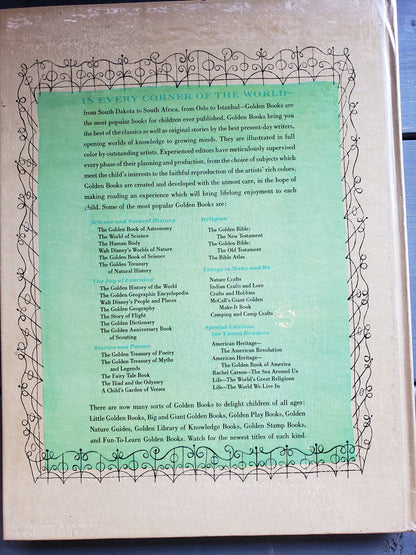 IN EVERY CORNER OF THE WORLD—
from South Dakota to South Africa, from Oslo to Istanbul—Golden Books are
the most popular books for children ever published. Golden Books bring you
the best of the classics as well as original stories by the best present-day writers,
opening worlds of knowledge to growing minds. They are illustrated in full
color by outstanding artists. Experienced editors have meticulously supervised
every phase of their planning and production, from the choice of subjects which
meet the child's interests to the faithful reproduction of the artists' rich colors.
Golden Books are created and developed with the utmost care, in the hope of
making reading an experience which will bring lifelong enjoyment to each
child. Some of the most popular Golden Books are:
Science and Natural History
The Golden Book of Astronomy
The World of Science
The Human Body
Walt Disney's Worlds of Nature
The Golden Book of Science
The Golden Treasury
of Natural History
The Joy of Learning
The Golden History of the World
The Golden Geographic Encyclopedia
Walt Disney's People and Places
The Golden Geography
The Story of Flight
The Golden Dictionary
The Golden Anniversary Book
of Scouting
Stories and Poems
The Golden Treasury of Poetry
The Golden Treasury of Myths
and Legends
The Fairy Tale Book
The Iliad and the Odyssey
A Child's Garden of Verses
Religion
The Golden Bible:
The New Testament
The Golden Bible:
The Old Testament
The Bible Atlas
Things to Make and Do
Nature Crafts
Indian Crafts and Lore
Crafts and Hobbies
McCall's Giant Golden
Make-It Book
Camping and Camp Crafts
Special Editions
for Young Readers
American Heritage—
The American Revolution
American Heritage—
The Golden Book of America
Rachel Carson—The Sea Around Us
Life—The World's Great Religions
Life—The World We Live In
There are now many sorts of Golden Books to delight children of all ages:
Little Golden Books, Big and Giant Golden Books, Golden Play Books, Golden
Nature Guides, Golden Library of Knowledge Books, Golden Stamp Books,
and Fun-To-Learn Golden Books. Watch for the newest titles of each kind.